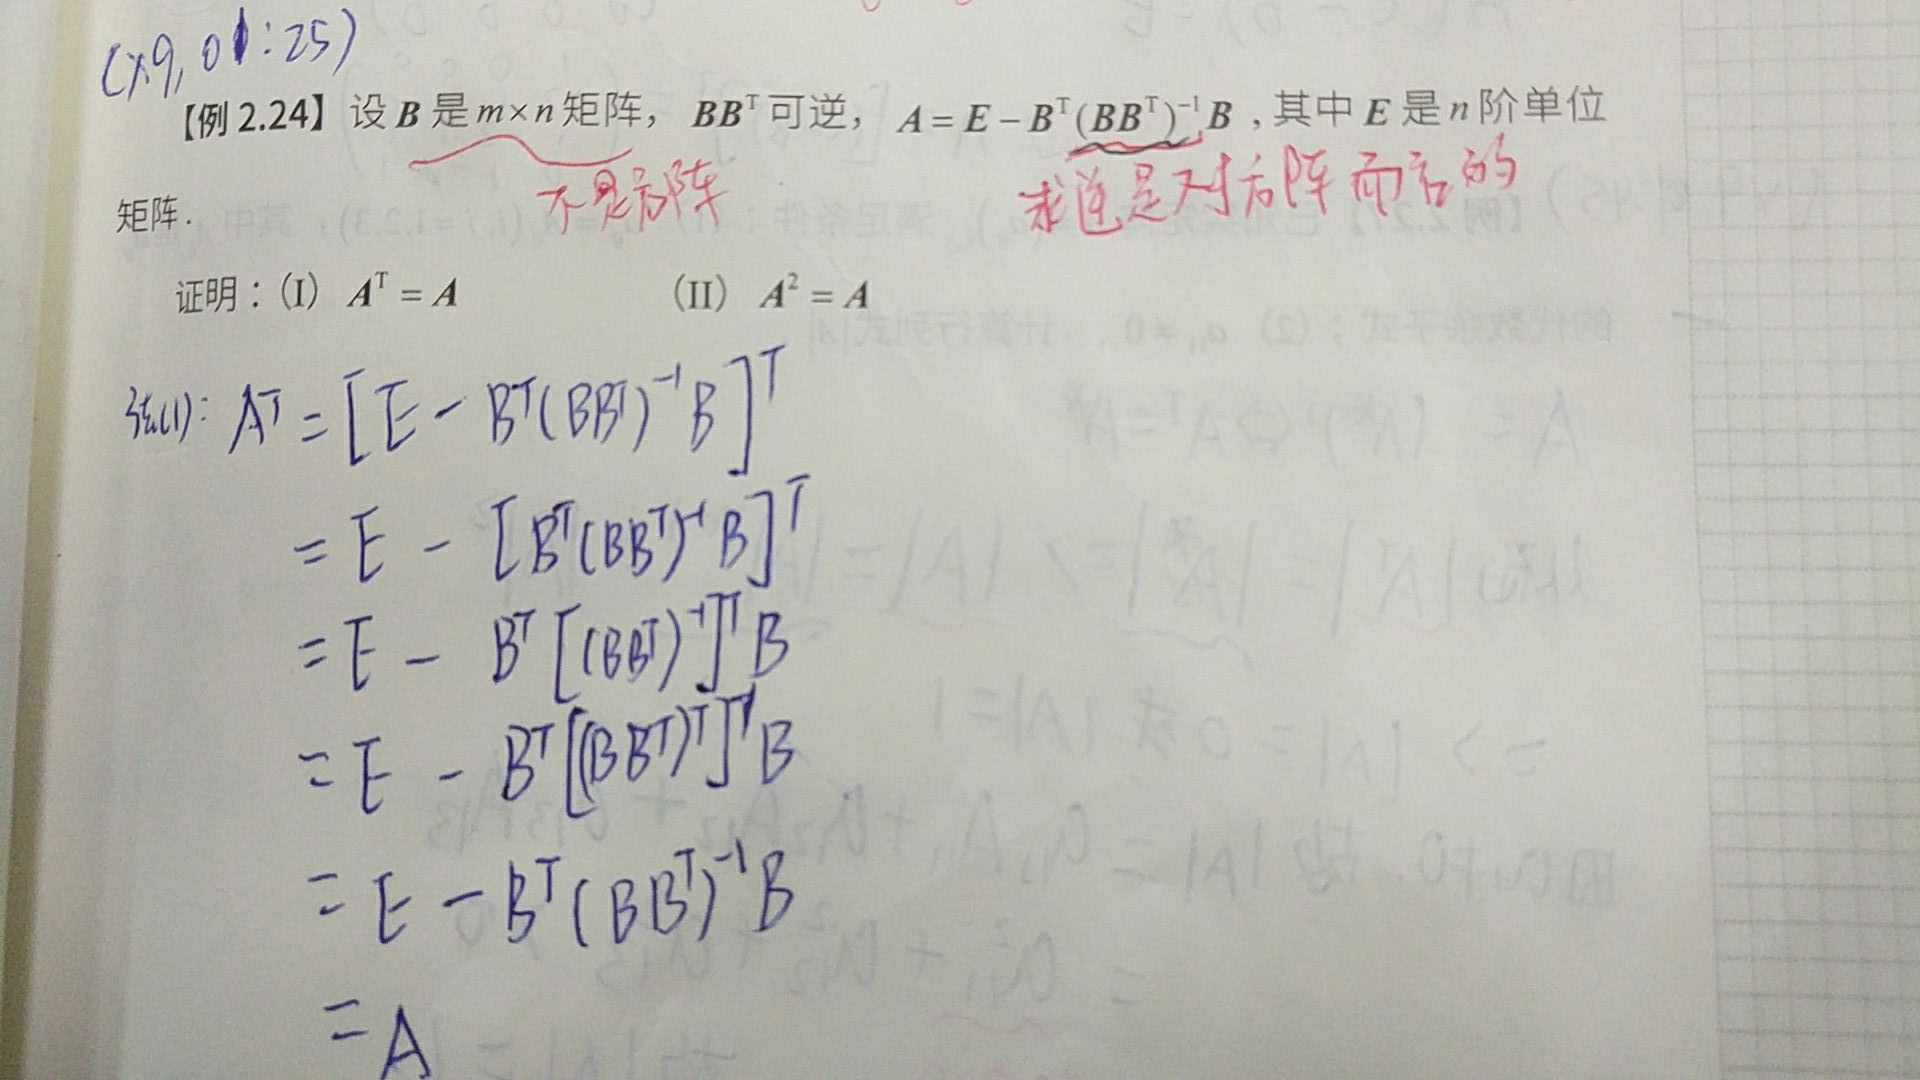 (x9, 01:25)
【例 2.24】设 B 是 m×n 矩阵，BBᵀ 可逆，A = E − Bᵀ(BBᵀ)⁻¹B，其中 E 是 n 阶单位
不是方阵 求逆是对方阵而言的
矩阵.
证明：(I) Aᵀ = A (II) A² = A
(1): Aᵀ = [E − Bᵀ(BBᵀ)⁻¹B]ᵀ
= E − [Bᵀ(BBᵀ)⁻¹B]ᵀ
= E − Bᵀ[(BBᵀ)⁻¹]ᵀB
= E − Bᵀ[(BBᵀ)ᵀ]⁻¹B
= E − Bᵀ(BBᵀ)⁻¹B
= A